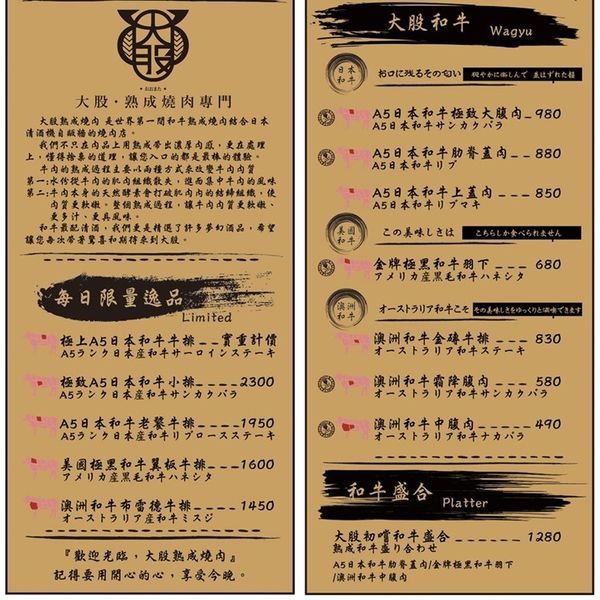 大股
おおまた
大股・熟成燒肉專門
大股熟成燒肉 是世界第一間和牛熟成燒肉結合日本
清酒機自販機的燒肉店。
我們不只在肉品上用熟成帶出濃厚肉感，更在處理
上，懂得拾棄的道理，讓您入口的都是最棒的體驗。
牛肉的熟成過程主要以兩種方式來改變牛肉肉質
第一:水份從牛肉的肌肉組織散失，進而集中牛肉的風味
第二:牛肉本身的天然酵素會打破肌肉內的結締組織，使
肉質更軟嫩。整個熟成過程，讓牛肉肉質更軟嫩、
更多汁、更具風味。
和牛最配清酒，我們更是精選了許多夢幻酒品，希望
讓您每次帶著驚喜和期待來到大股。
每日限量逸品
Limited
極上A5日本和牛牛排____實重計價
A5ランク日本産和牛サーロインステーキ
極致A5日本和牛小排____2300
A5ランク日本産和牛サンカクバラ
A5日本和牛老饕牛排____1950
A5ランク日本産和牛リブロースステーキ
美國極黑和牛翼板牛排___1600
アメリカ産黒毛和牛ハネシタ
澳洲和牛布雷德牛排____1450
オーストラリア産和牛ミスジ
『歡迎光臨，大股熟成燒肉』
記得要用開心的心，享受今晚。
大股和牛 Wagyu
日本和牛
お口に残るその匂い
A5日本和牛極致大腹肉_980
A5日本和牛サンカクバラ
A5日本和牛肋脊蓋肉__880
A5日本和牛リブ
A5日本和牛上蓋肉___850
A5日本和牛リブマキ
美國和牛
この美味しさは こちらしか食べられません
金牌極黑和牛羽下____680
アメリカ産黒毛和牛ハネシタ
澳洲和牛
オーストラリア和牛こそ その美味しさをゆっくりと御味できます
澳洲和牛金磚牛排____830
オーストラリア和牛ステーキ
澳洲和牛霜降腹肉____580
オーストラリア和牛サンカクバラ
澳洲和牛中腹肉_____490
オーストラリア和牛ナカバラ
和牛盛合 Platter
大股初嚐和牛盛合____1280
熟成和牛盛り合わせ
A5日本和牛肋脊蓋肉/金牌極黑和牛羽下
/澳洲和牛中腹肉